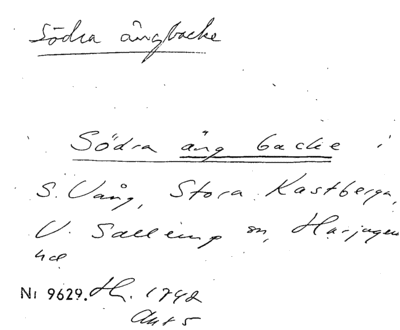 Södra ångbacke
Södra äng backe i
S. Vång, Stora Kastberga,
V. Salleup sn, Harjagers
hd
Nr 9629. Hh. 1742
Akt 5